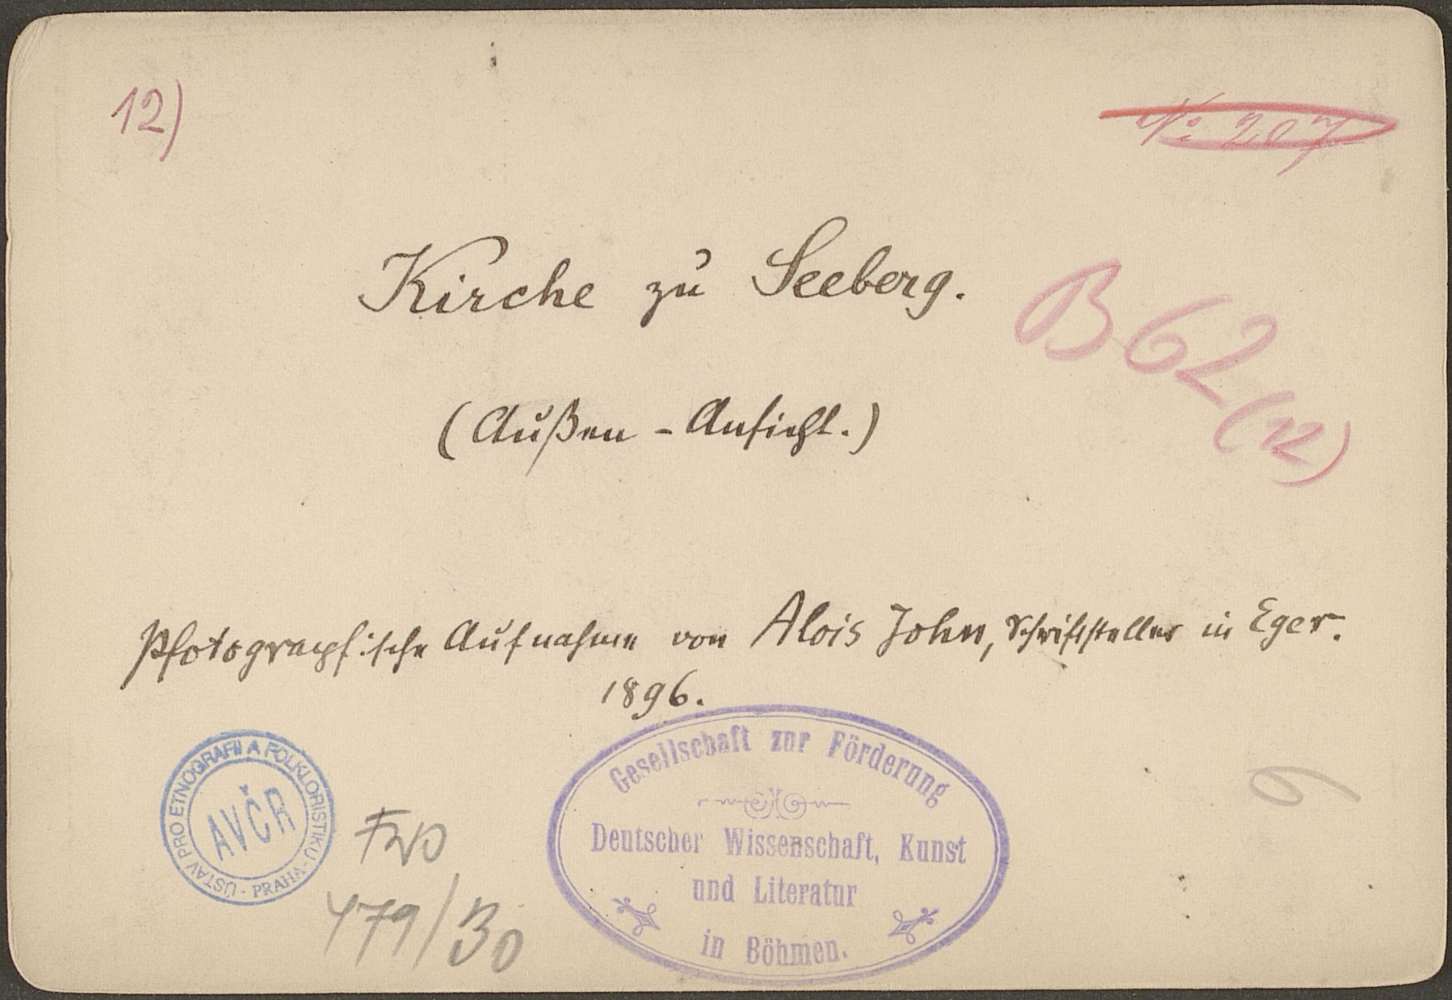 12)
N: 207
Kirche zu Seeberg.
B 62
(12)
(Außen-Ansicht.)
Photographische Aufnahme von Alois John, Schriftsteller in Eger.
1896.
Gesellschaft zur Förderung
Deutscher Wissenschaft, Kunst
und Literatur
in Böhmen.
ÚSTAV PRO ETNOGRAFII A FOLKLORISTIKU - PRAHA -
AVČR